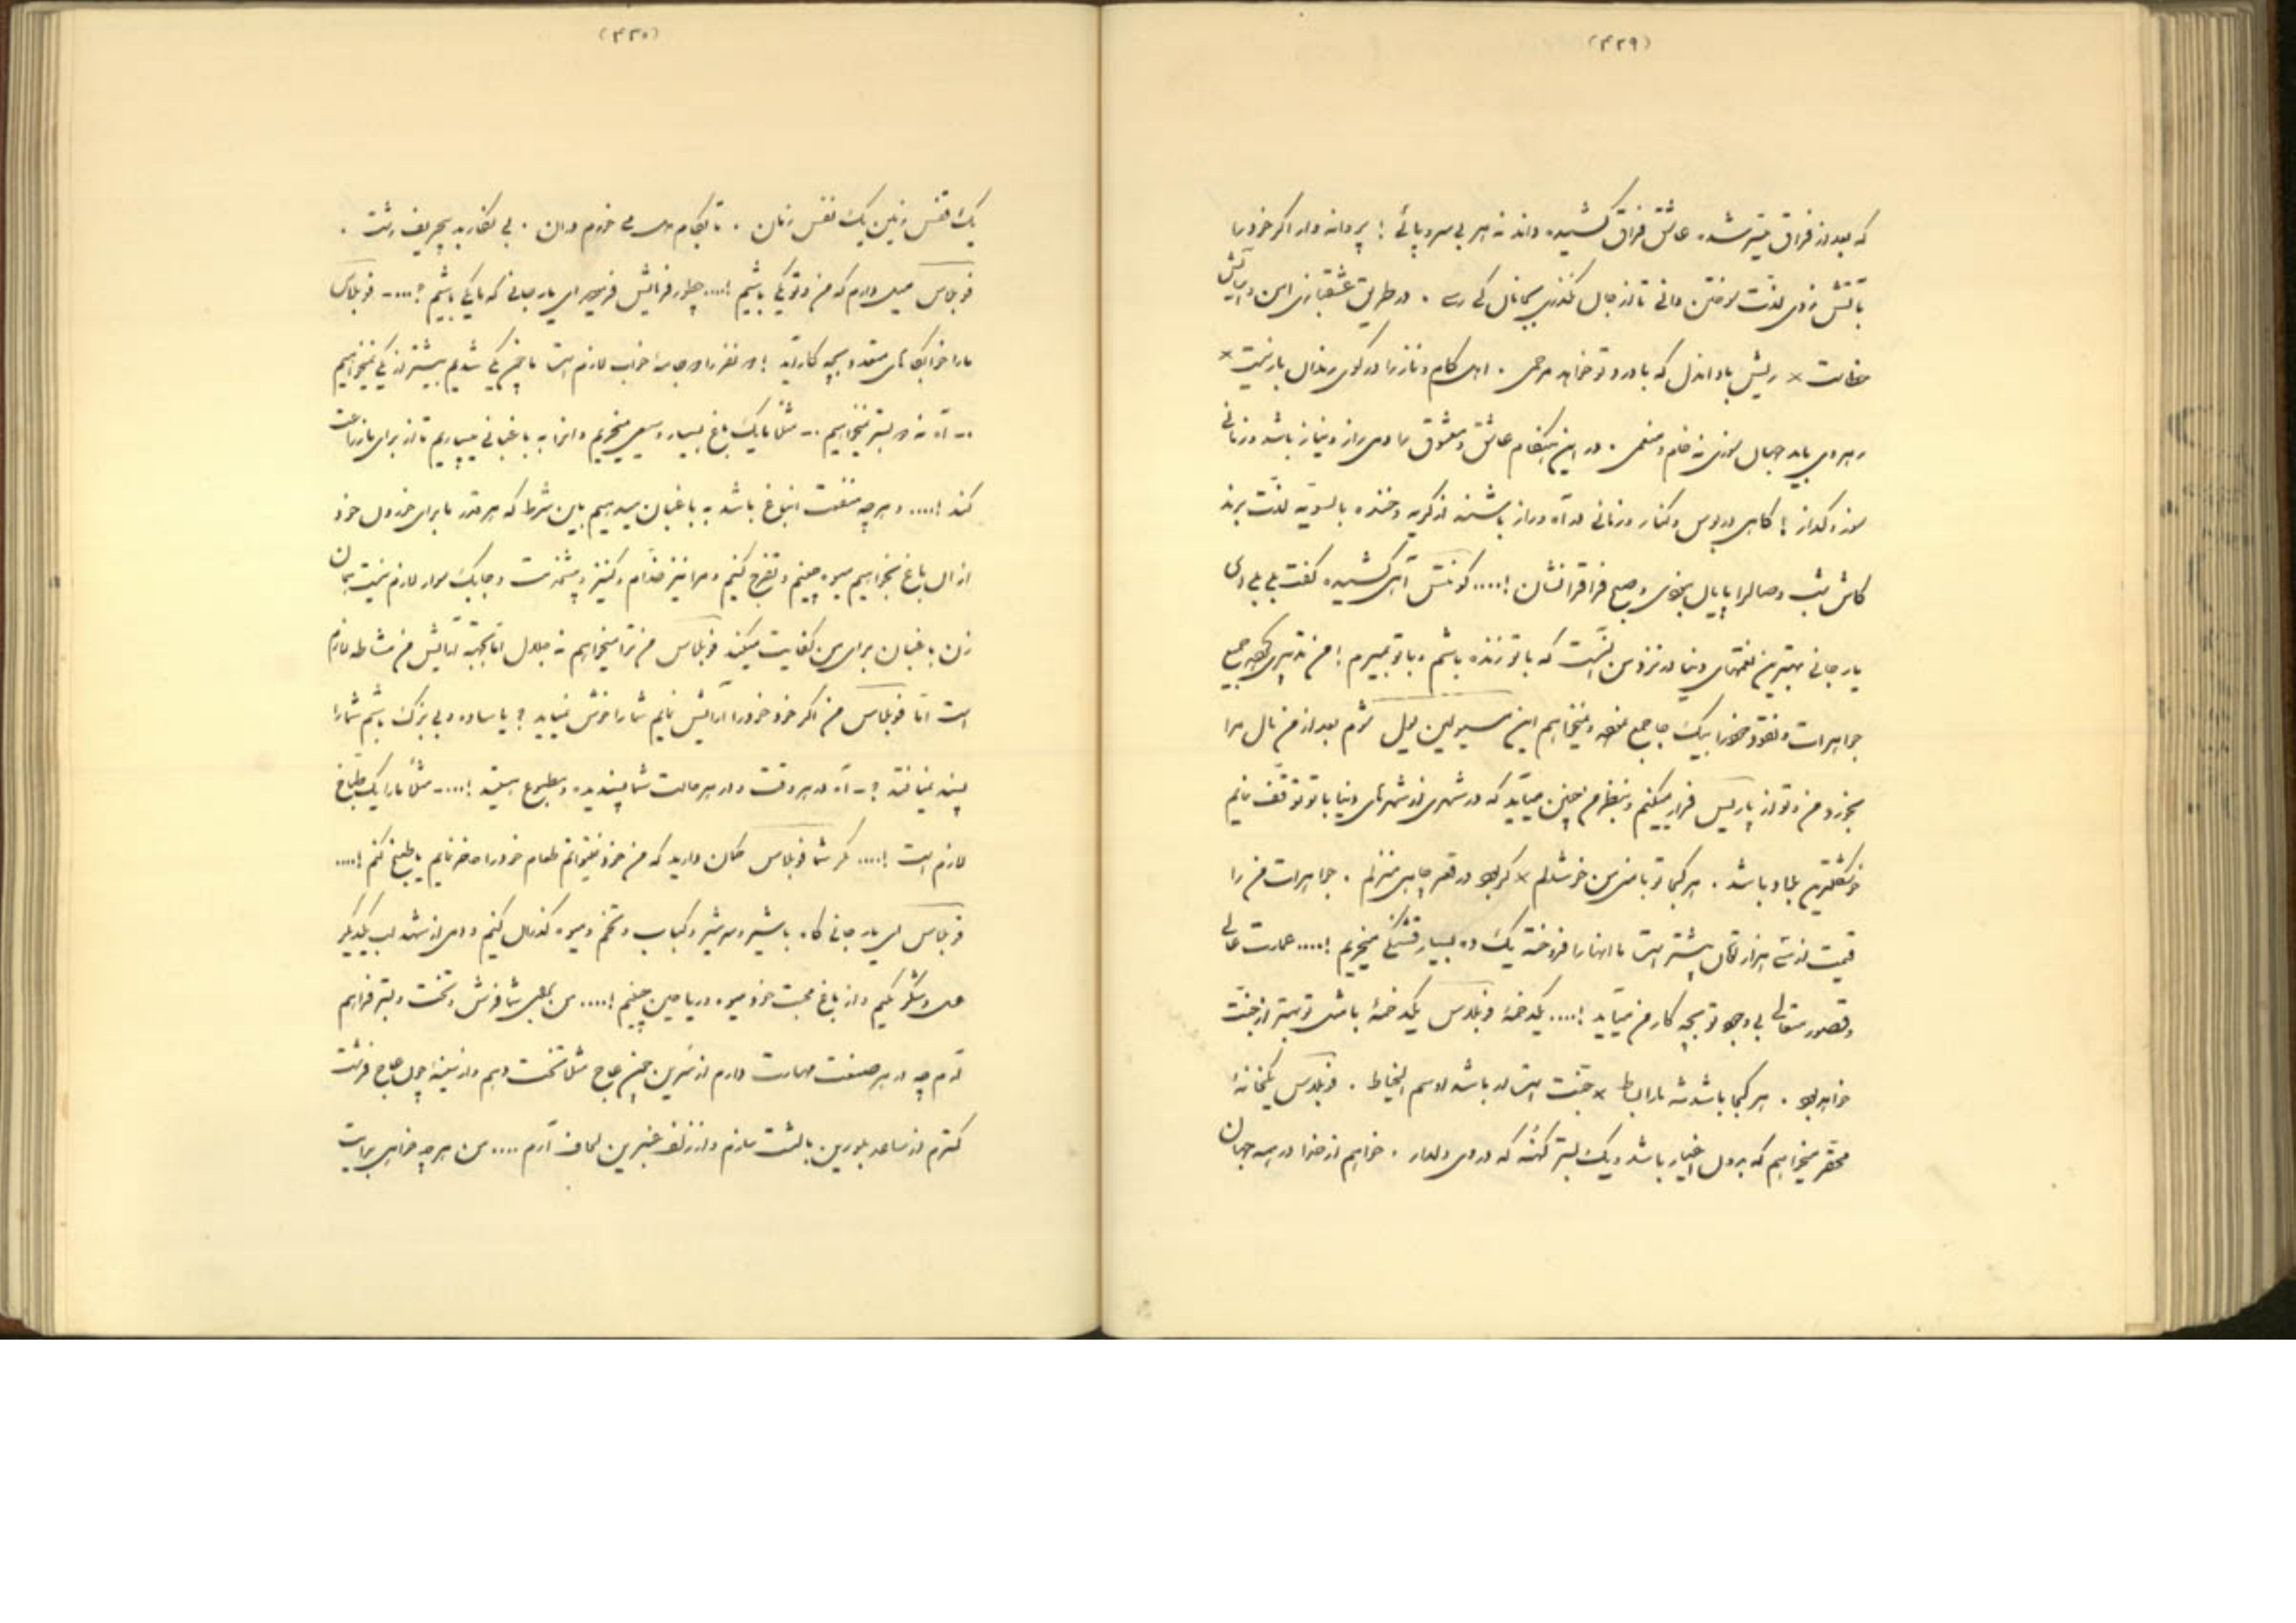 (۴۲۹)
که بعد از فراق میسّر شده عاشق فراق کشیده داند نه هر بی سر و پائی ! پروانه وار اگر خود را
بآتش زدی لذّت سوختن دانی تا از جان نگذری بجانان کی رسی . در طریق عشقبازی امن و آسایش
خطاست × ریش باد آندل که با درد تو خواهد مرهمی . اهل کام و ناز را در کوی رندان راه نیست ×
رهروی باید جهان سوزی نه خام و بیغمی . در این هنگام عاشق و معشوق را دمی راز و نیاز باشد و زمانی
سوز و گداز ! گاهی در بوس و کنار و زمانی در آه و زار باشند از گریه و خنده بالسویّه لذّت برند
کاش شب وصالرا پایان بودی و صبح فراقرا نشان !.... آهی کشیده گفت بلی بلی ای
یار جانی بهترین نعمتهای دنیا در نزد من آنست که با تو زنده باشم و با تو بمیرم ! من تدبیری کرده جمیع
جواهرات و نقود خود را بیک جا جمع نموده و میخواهم این شوم بعد از من مال مرا
بخورد من و تو از پاریس فرار میکنیم و بنظرم چنین میآید که در شهری از شهرهای دنیا با تو توقّف نمایم
خوشگلترین بلاد باشد . هر کجا تو با منی من خوشدلم × گر بود در قعر چاهی منزلم . جواهرات من را
قیمت از سه هزار تومان بیشتر است ما آنها را فروخته یک ده بسیار قشنگی میخریم !.... عمارت عالی
و قصور متعالی بی وجود تو بچه کار من میآید !.... یکدخمهٔ یکدخمهٔ با شما تو بهتر از جنّت
خواهد بود . هر کجا باشد شه ما را بساط × جنّت است ار باشد او سمّ الخیاط . یکخانهٔ
محقّر میخواهم که بدون اغیار باشد و یک بستر کهنه که در وی دلدار . خواهم از خدا در همه جهان
(۴۳۰)
یک قفس زمین یک نفس زمان . تا بکام دل می خورم در آن . بی نگار بد بی حریف زشت .
میل دارم که من و تو یکی باشیم !.... چطور فرمایش فرمودید ای یار جانی که ما یکی باشیم ؟....
ما را خوابگاهای متعدد بچه کار آید ! دو نفر را دو جامهٔ خواب لازم است ما چون یکی شدیم بیشتر از یکی نمیخواهیم
... آه نه دو بستر نمیخواهیم ... مثلاً ما یک باغ بسیار وسیعی میخریم و آنرا به باغبانی میسپاریم تا از برای ما زراعت
کند !.... و هر چه منفعت این باغ باشد به باغبان میدهیم باین شرط که هر قدر ما برای خوردن خود
از آن باغ بخواهیم میوه چینیم و تفرّج کنیم و مرا نیز خدّام و کنیز و پیشخدمت و چابک سوار لازم نیست همان
زن باغبان برای من کفایت میکند من ترا میخواهم نه جلال امّا بجهت آرایش من مشاطه لازم
است امّا من اگر خود خود را آرایش نمایم شما را خوش نمیآید ؟ یا ساده و بی بزک باشم شما را
پسند نمیافتد ؟ - آه در هر وقت و در هر حالت شما پسندیده و مطبوع هستید !.... مثلاً ما را یک طبّاخ
لازم است !.... مگر شما گمان دارید که من خود نمیتوانم طعام خود را حاضر نمایم یا طبخ کنم !....
ای یار جانی گاه با شیر و سرشیر و کباب و تخم و میوه گذران کنیم و دمی از شهد لب یکدیگر
عسل و شکر کنیم و از باغ محبّت خود میوه و ریاحین چینیم !.... من بجای شما فرش و تخت و بستر فراهم
آرم چه در هر صنعت مهارت دارم از سُرین چون عاج مثلاً تخت دهم و از سینهٔ چون عاج فرشت
گسترم از ساعد بلورین بالشت سازم و از زلف عنبرین لحاف آرم .... من هر چه خواهی برایت